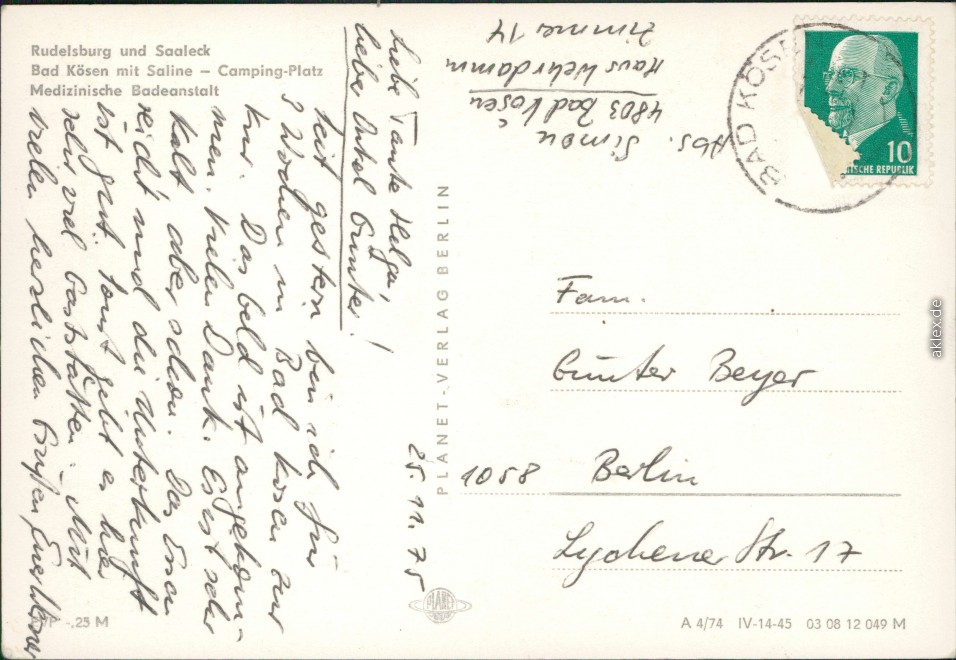 Rudelsburg und Saaleck
Bad Kösen mit Saline – Camping-Platz
Medizinische Badeanstalt
25. 11. 75
Liebe Tante Helga,
lieber Onkel Günter!
Seit gestern bin ich für
3 Wochen in Bad Kösen zur
Kur. Das Geld ist angekom-
men. Vielen Dank. Es ist sehr
kalt, aber schön. Das Essen
reicht und die Unterkunft
ist gut. Sonst gibt es hier
sehr viel Gaststätten. Mit
vielen herzlichen Grüßen Euer
Abs. Simon
4803 Bad Kösen
Haus Wehrdamm
Zimmer 14
PLANET-VERLAG BERLIN
PLANET
BAD KÖSEN
10
DEMOKRATISCHE REPUBLIK
Fam.
Günter Beyer
1058 Berlin
Lychener Str. 17
-.25 M
A 4/74 IV-14-45 03 08 12 049 M
aklex.de